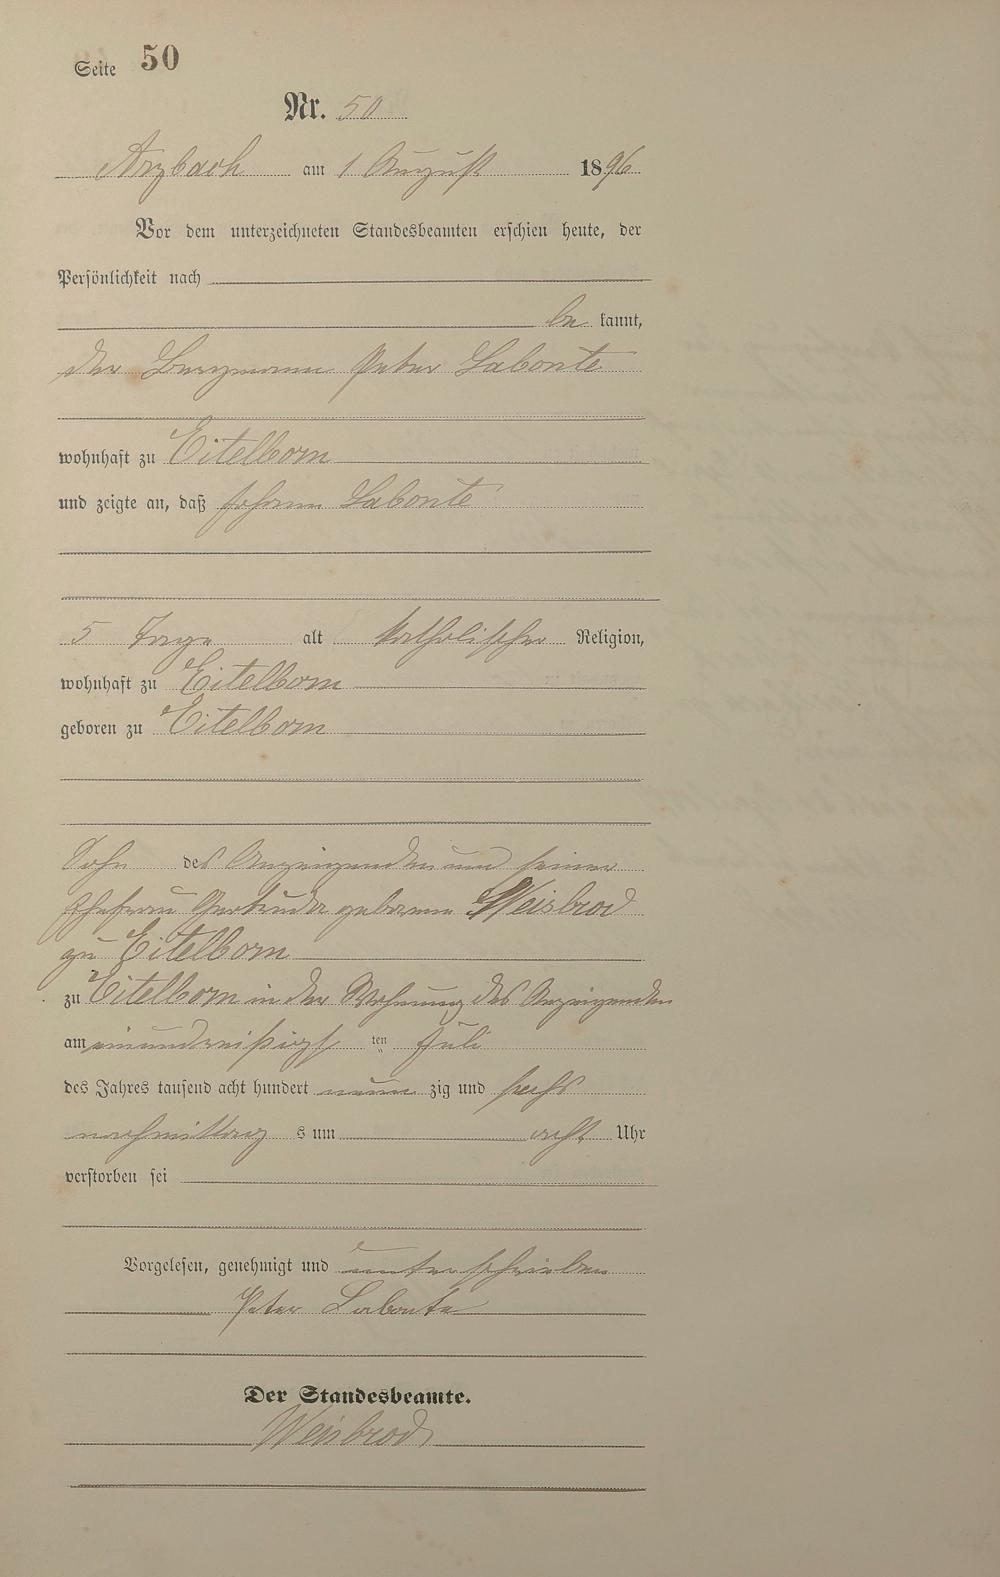 Seite 50
Nr. 50
Arzbach am 1 August 1896
Vor dem unterzeichneten Standesbeamten erschien heute, der
Persönlichkeit nach
be kannt,
der Bergmann Peter Labonte
wohnhaft zu Eitelborn
und zeigte an, daß Johann Labonte
5 Tage alt katholischer Religion,
wohnhaft zu Eitelborn
geboren zu Eitelborn
Sohn des Anzeigenden und seiner
Ehefrau Gertruda geborene Weisbrod
zu Eitelborn
zu Eitelborn in der Wohnung des Anzeigenden
am einunddreißigst ten Juli
des Jahres tausend acht hundert neun zig und sechs
nachmittag s um acht Uhr
verstorben sei
Vorgelesen, genehmigt und unterschrieben
Peter Labonte
Der Standesbeamte.
Weisbrod